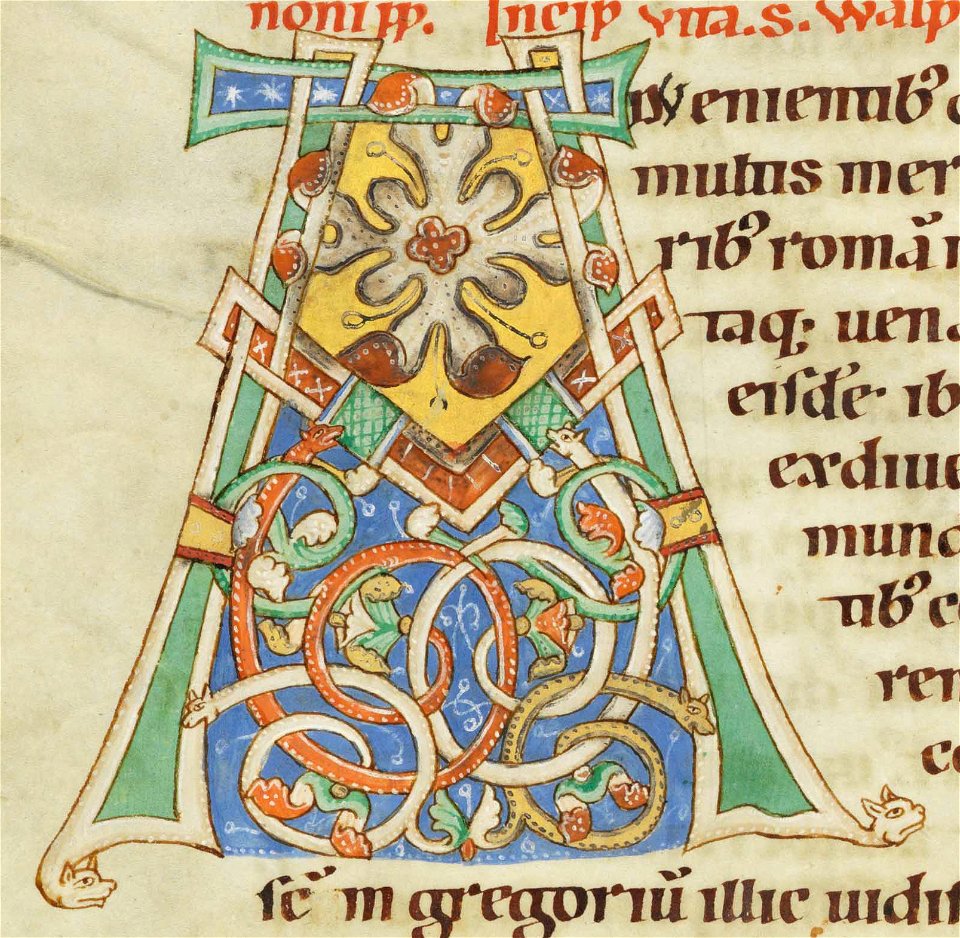 noni pp. Incip vita. s. Walp
A
DVenientibꝰ
multis mer
ribꝰ romā
taqꝫ uen
eisdē ib
ex diue
mun
tibꝰ co
ren
co
scī in gregoriū illic uidis